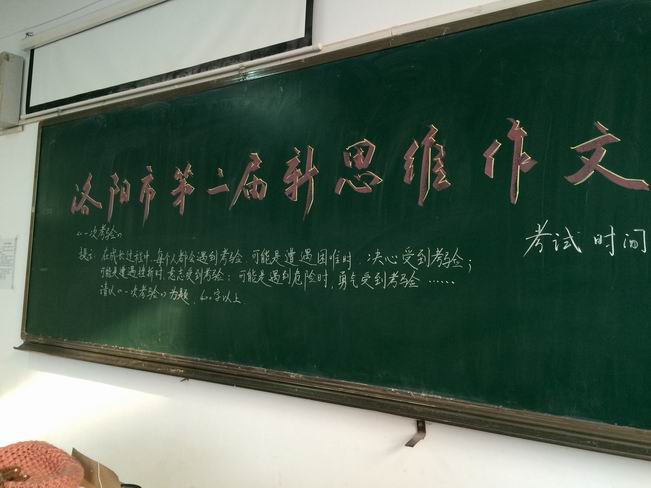 洛阳市第二届新思维作文
考试时间
《一次考验》
提示：在成长过程中，每个人都会遇到考验，可能是遭遇困难时，决心受到考验；
可能是遭遇挫折时，意志受到考验；可能是遇到危险时，勇气受到考验……
请以《一次考验》为题，600字以上